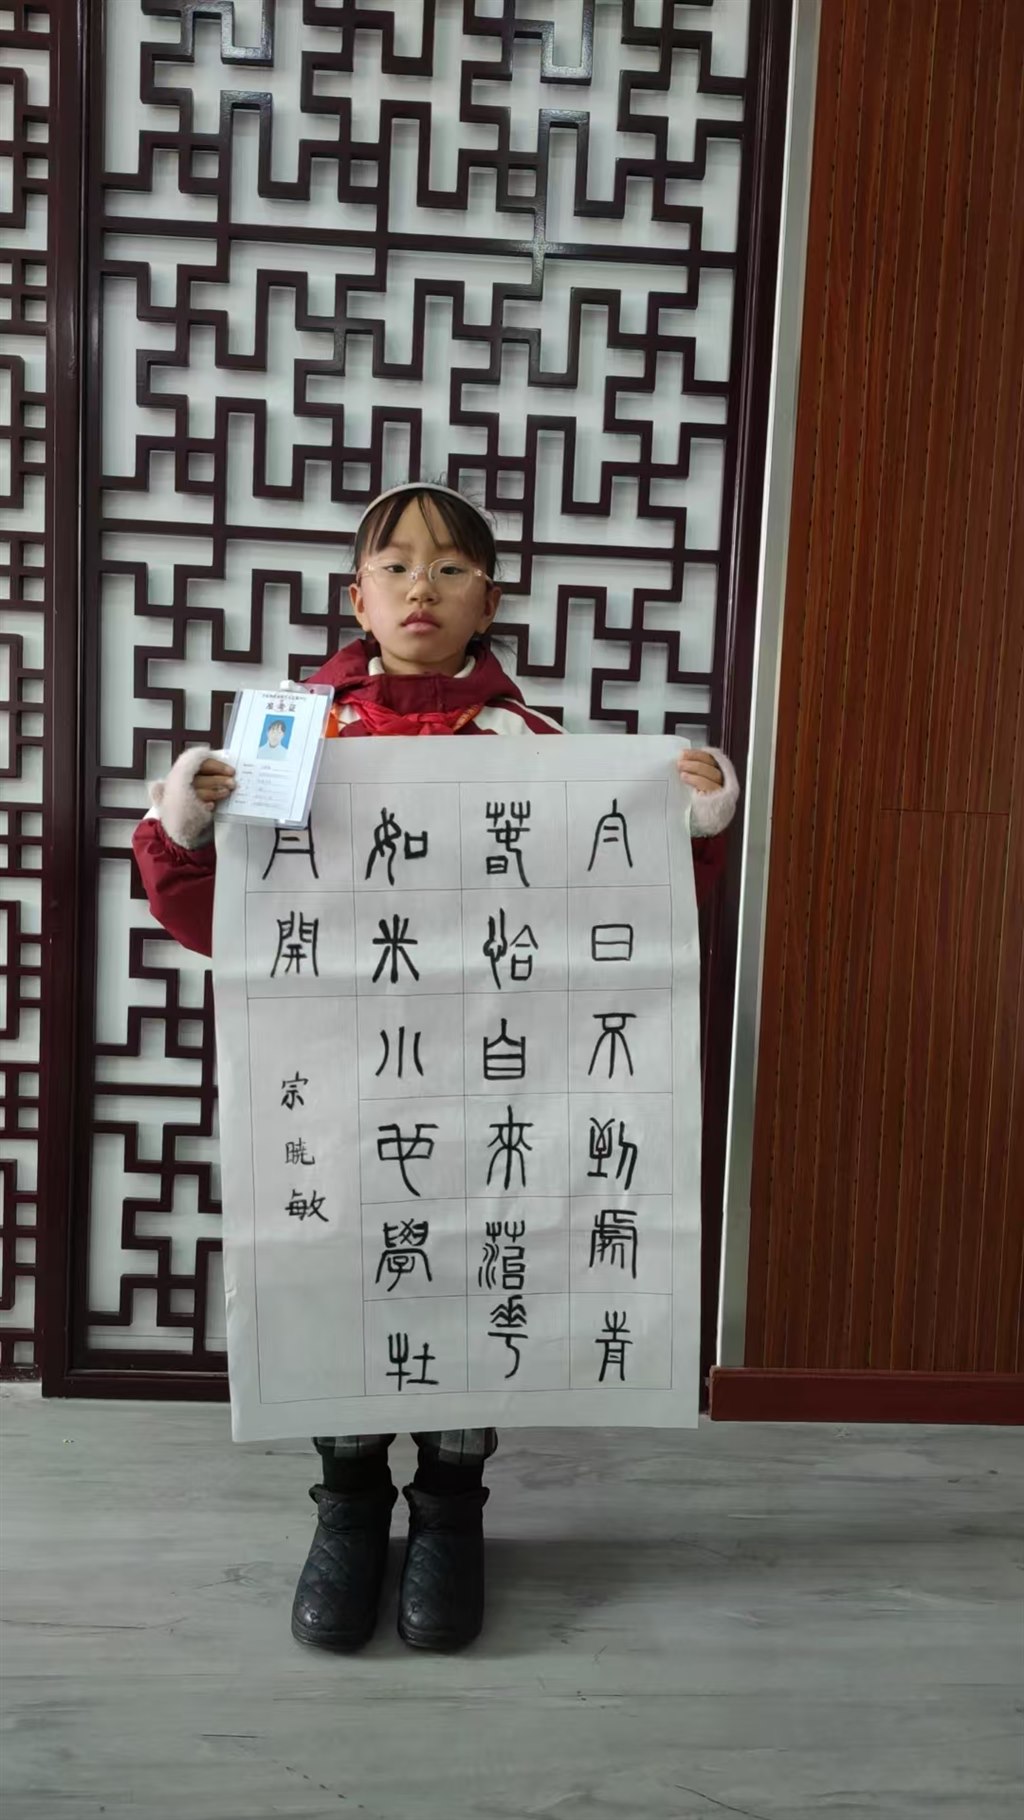 白日不到處青
春恰自來菭華
如米小也學牡
丹開
宗晓敏
准考证